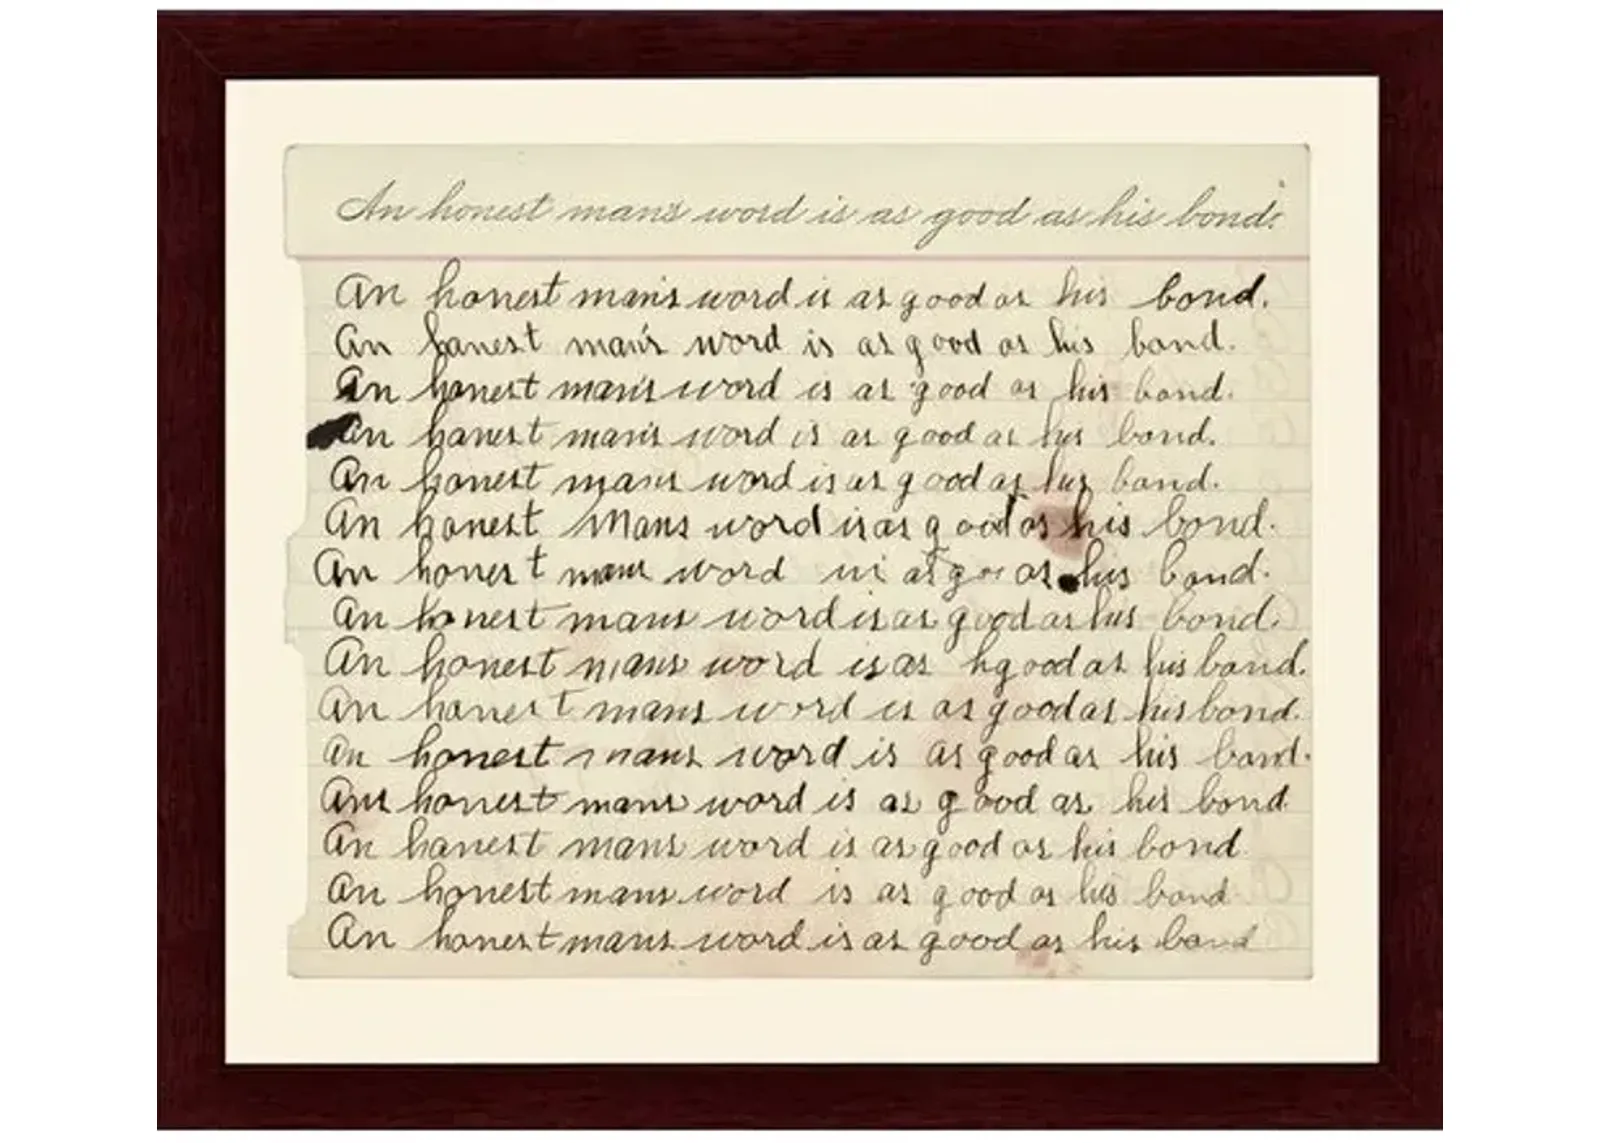 An honest man's word is as good as his bond.
An honest man's word is as good as his bond.
An honest man's word is as good as his bond.
An honest man's word is as good as his bond.
An honest man's word is as good as his bond.
An honest mans word is as good as his bond.
An honest Mans word is as good as his bond.
An honest mans word is as goo as his bond.
An honest mans word is as good as his bond.
An honest mans word is as hgood as his bond.
An honest mans word is as good as his bond.
An honest mans word is as good as his bond.
Ans honest mans word is as good as his bond
An honest mans word is as good as his bond
An honest mans word is as good as his bond
An honest mans word is as good as his bond